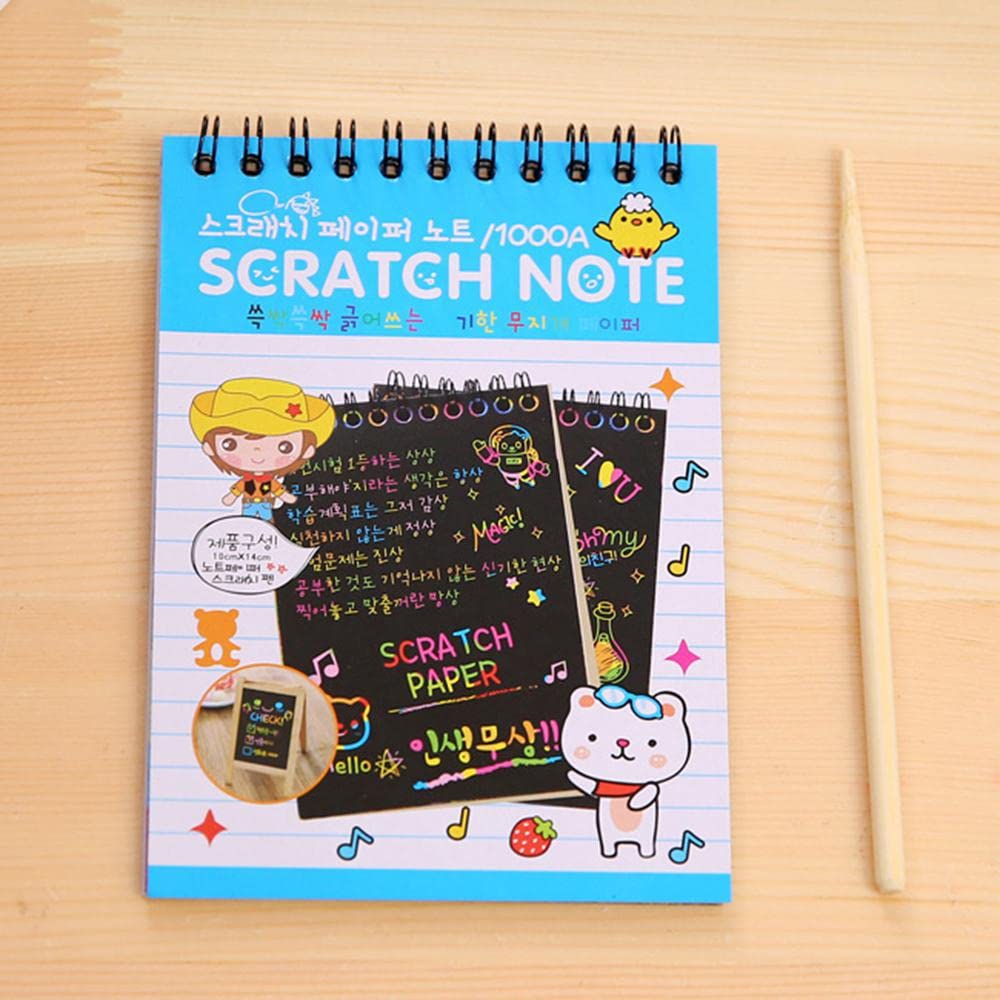 스크래치 페이퍼 노트 /1000A
SCRATCH NOTE
쓱싹쓱싹 긁어쓰는 기한 무지개 페이퍼
시험 1등하는 상상
공부해야지라는 생각은 항상
학습계획표는 그저 감상
실천하지 않는게 정상
험문제는 진상
공부한 것도 기억나지 않는 신기한 현상
찍어놓고 맞출꺼란 망상
MAGIC!
SCRATCH
PAPER
hello
인생무상!!
I U
Oh my
친구
제품구성!
10cm×14cm
노트페이퍼
스크래치 펜
CHECK!